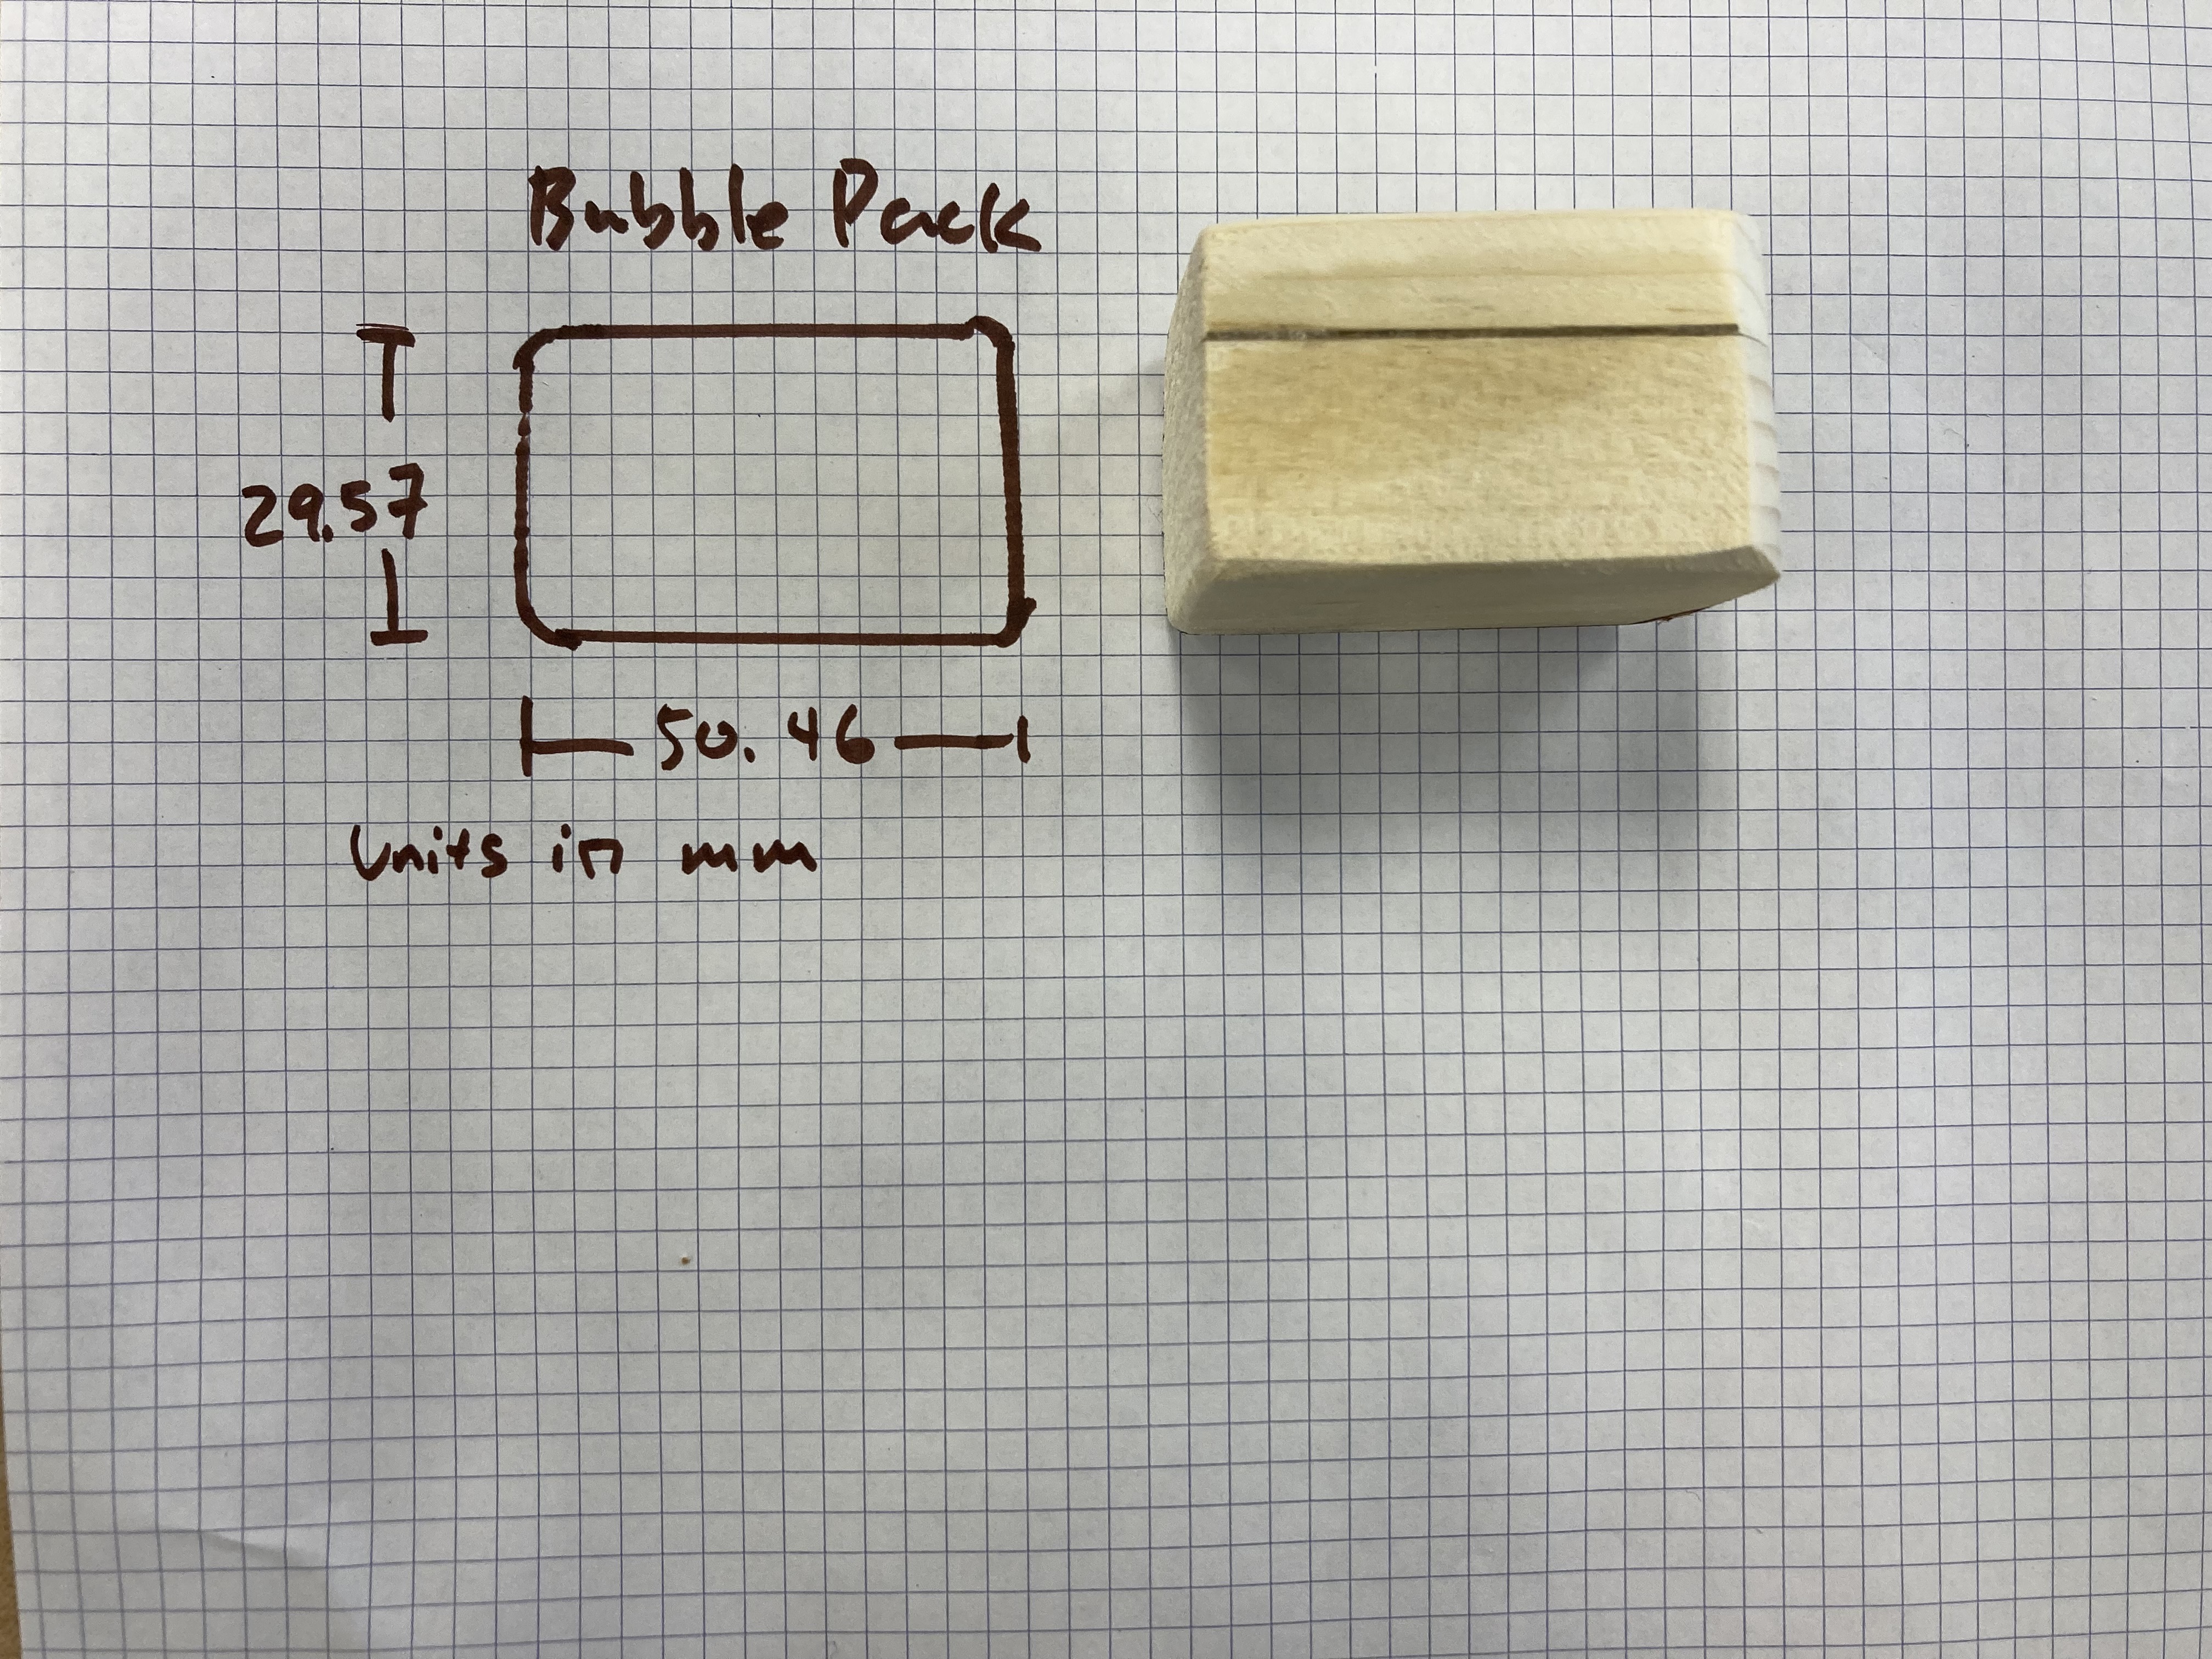 Bubble Pack
29.57
50.46
Units in mm